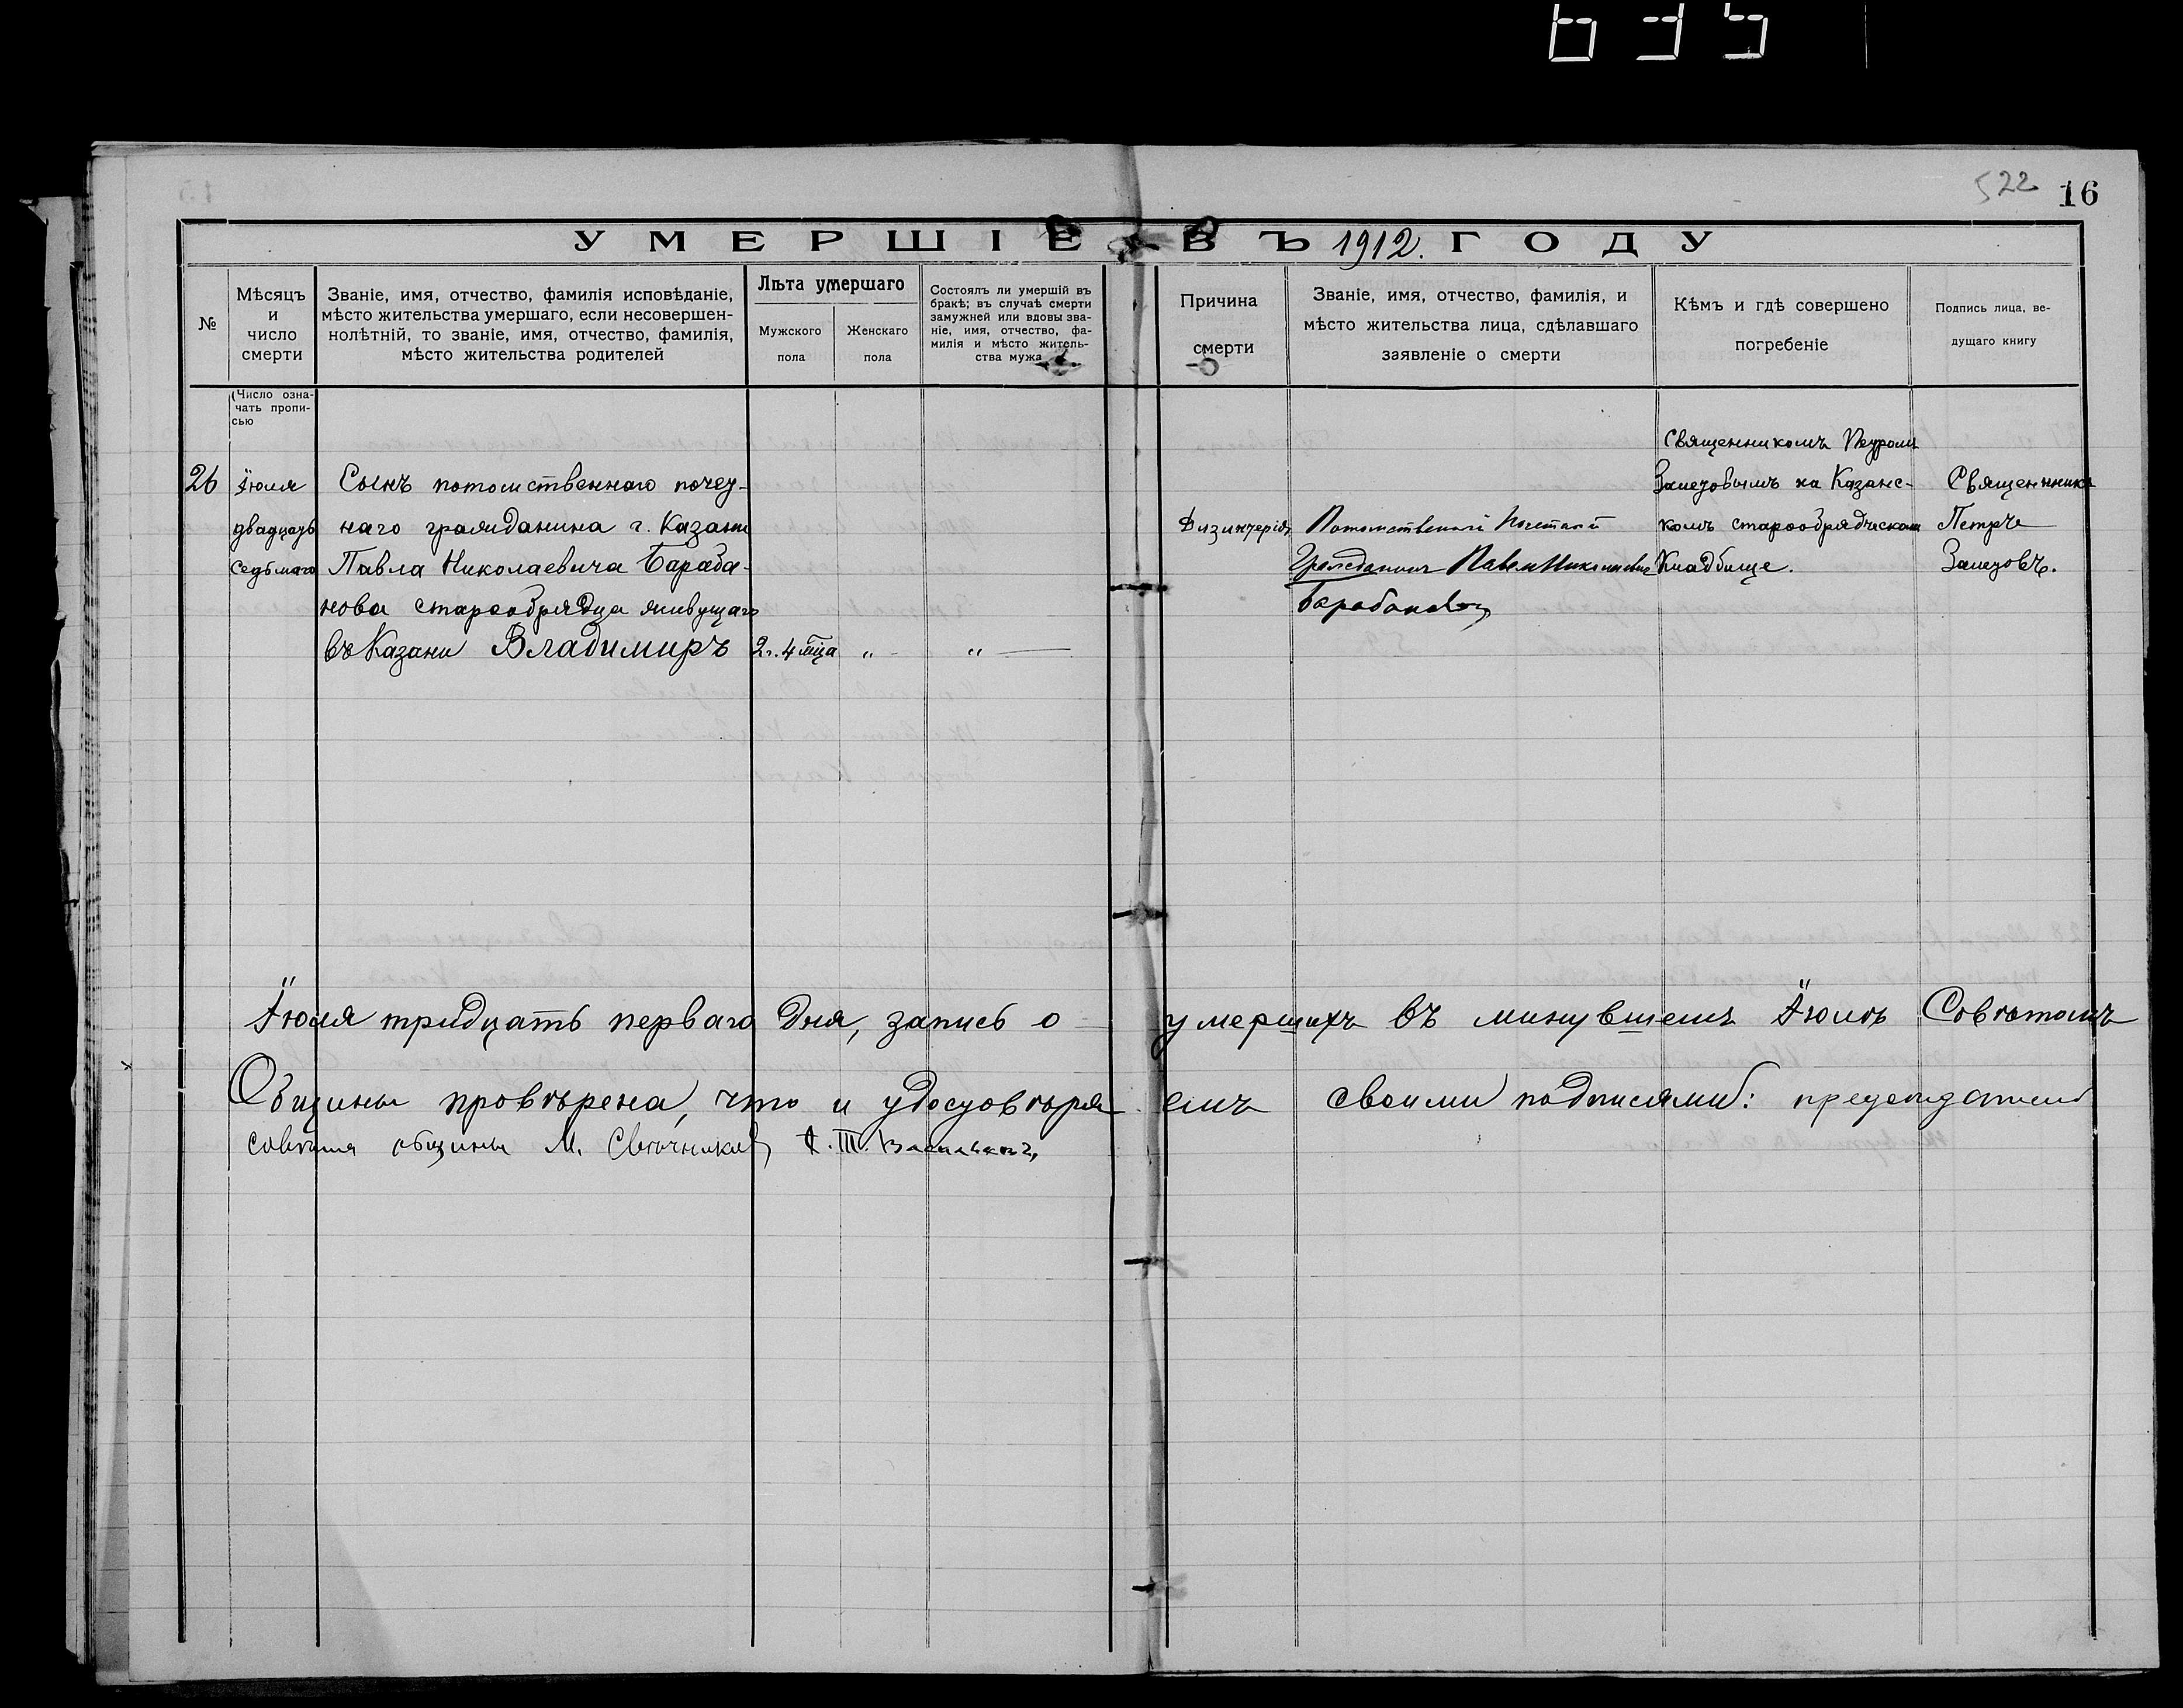 635
522 16
УМЕРШІЕ ВЪ 1912. ГОДУ
№
Мѣсяцъ
и
число
смерти
Званіе, имя, отчество, фамилія исповѣданіе,
мѣсто жительства умершаго, если несовершен-
нолѣтній, то званіе, имя, отчество, фамилія,
мѣсто жительства родителей
Лѣта умершаго
Мужского
пола
Женскаго
пола
Состоялъ ли умершій въ
бракѣ; въ случаѣ смерти
замужней или вдовы зва-
ніе, имя, отчество, фа-
милія и мѣсто житель-
ства мужа
Причина
смерти
Званіе, имя, отчество, фамилія, и
мѣсто жительства лица, сдѣлавшаго
заявленіе о смерти
Кѣмъ и гдѣ совершено
погребеніе
Подпись лица, ве-
дущаго книгу
(Число озна-
чать пропи-
сью
26
Іюля
двадцать
седьмаго
Сынъ потомственнаго почет-
наго гражданина г. Казани
Павла Николаевича Бараба-
нова старообрядца живущаго
въ Казани Владимиръ
2 г. 4 мца
„
„
Дизинтерія
Потомственый Почетный
Гражданинъ Павелъ Николаевич
Барабановъ
Священникомъ Петромъ
Залетовымъ на Казанс-
комъ старообрядческомъ
Кладбище.
Священникъ
Петръ
Залетовъ.
Іюля тридцать перваго дня, запись о умершихъ въ минувшемъ Іюлѣ Совѣтомъ
Общины провѣрена, что и удостовѣряемъ своими подписями: председатель
совѣта общины М. Свѣчниковъ